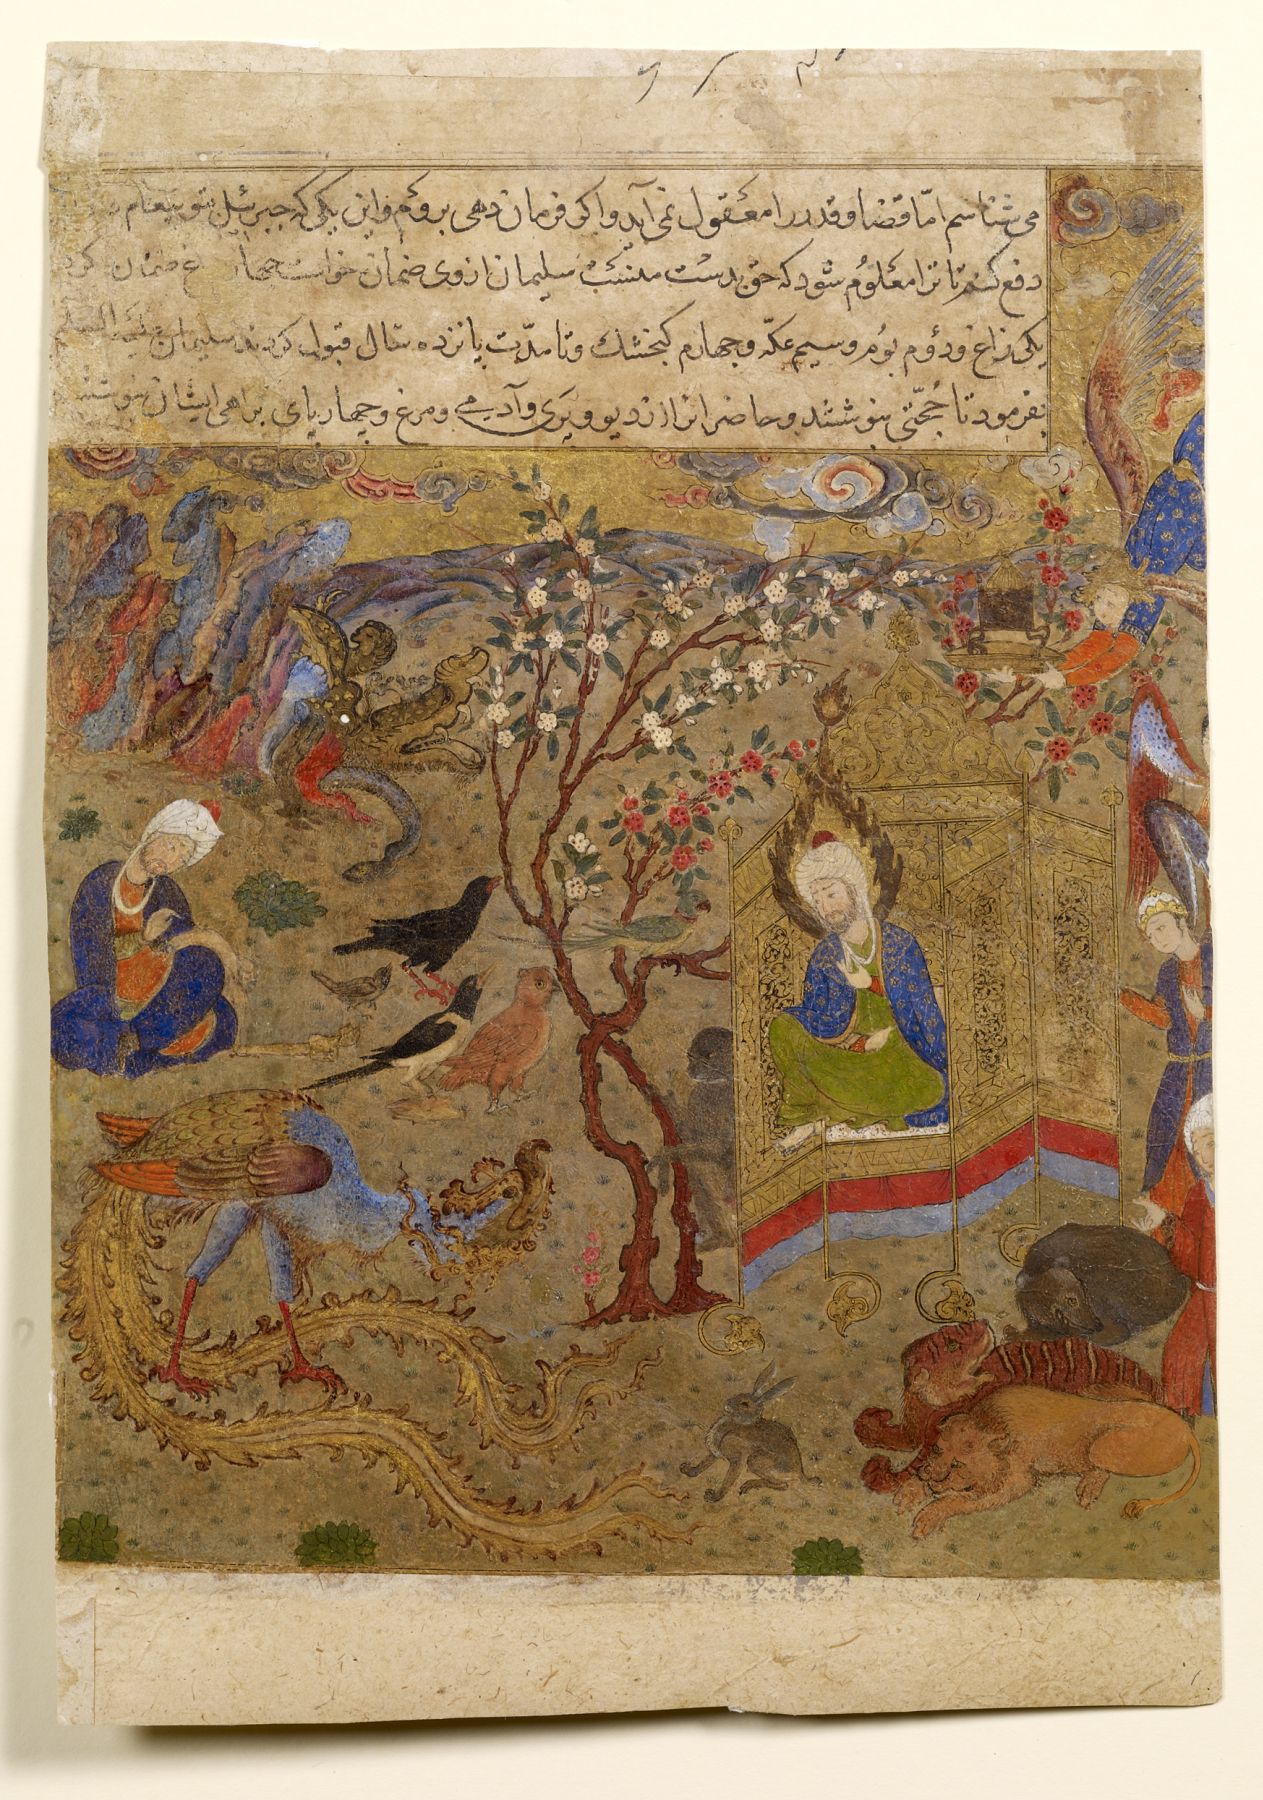 می‌شناسم امّا قضا و قدر را معقول نمی‌آید و اکر فرمان دهی بروم و این یکی که جبرئیل بتو پیغام
دفع کنم تا ترا معلوُم شود که حق بدست منست سلیمان ازوی ضمان خواست چهار مرغ ضمان کرد
یکی زاغ و دوُم بوُم و سیم عکّه و چهارم کنجشك و تا مدّت پانزده سال قبول کردند سلیمان علیه السلم
بفرمود تا حُجّتی بنوشتند و حاضران از دیو و پَری و آدمی و مرغ و چهارپای براهی ایشان بنوشتند